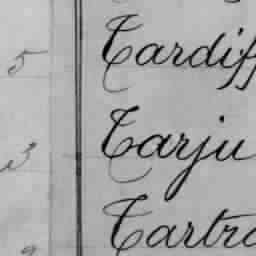 5 Tardiff
3 Tarju
Tartr